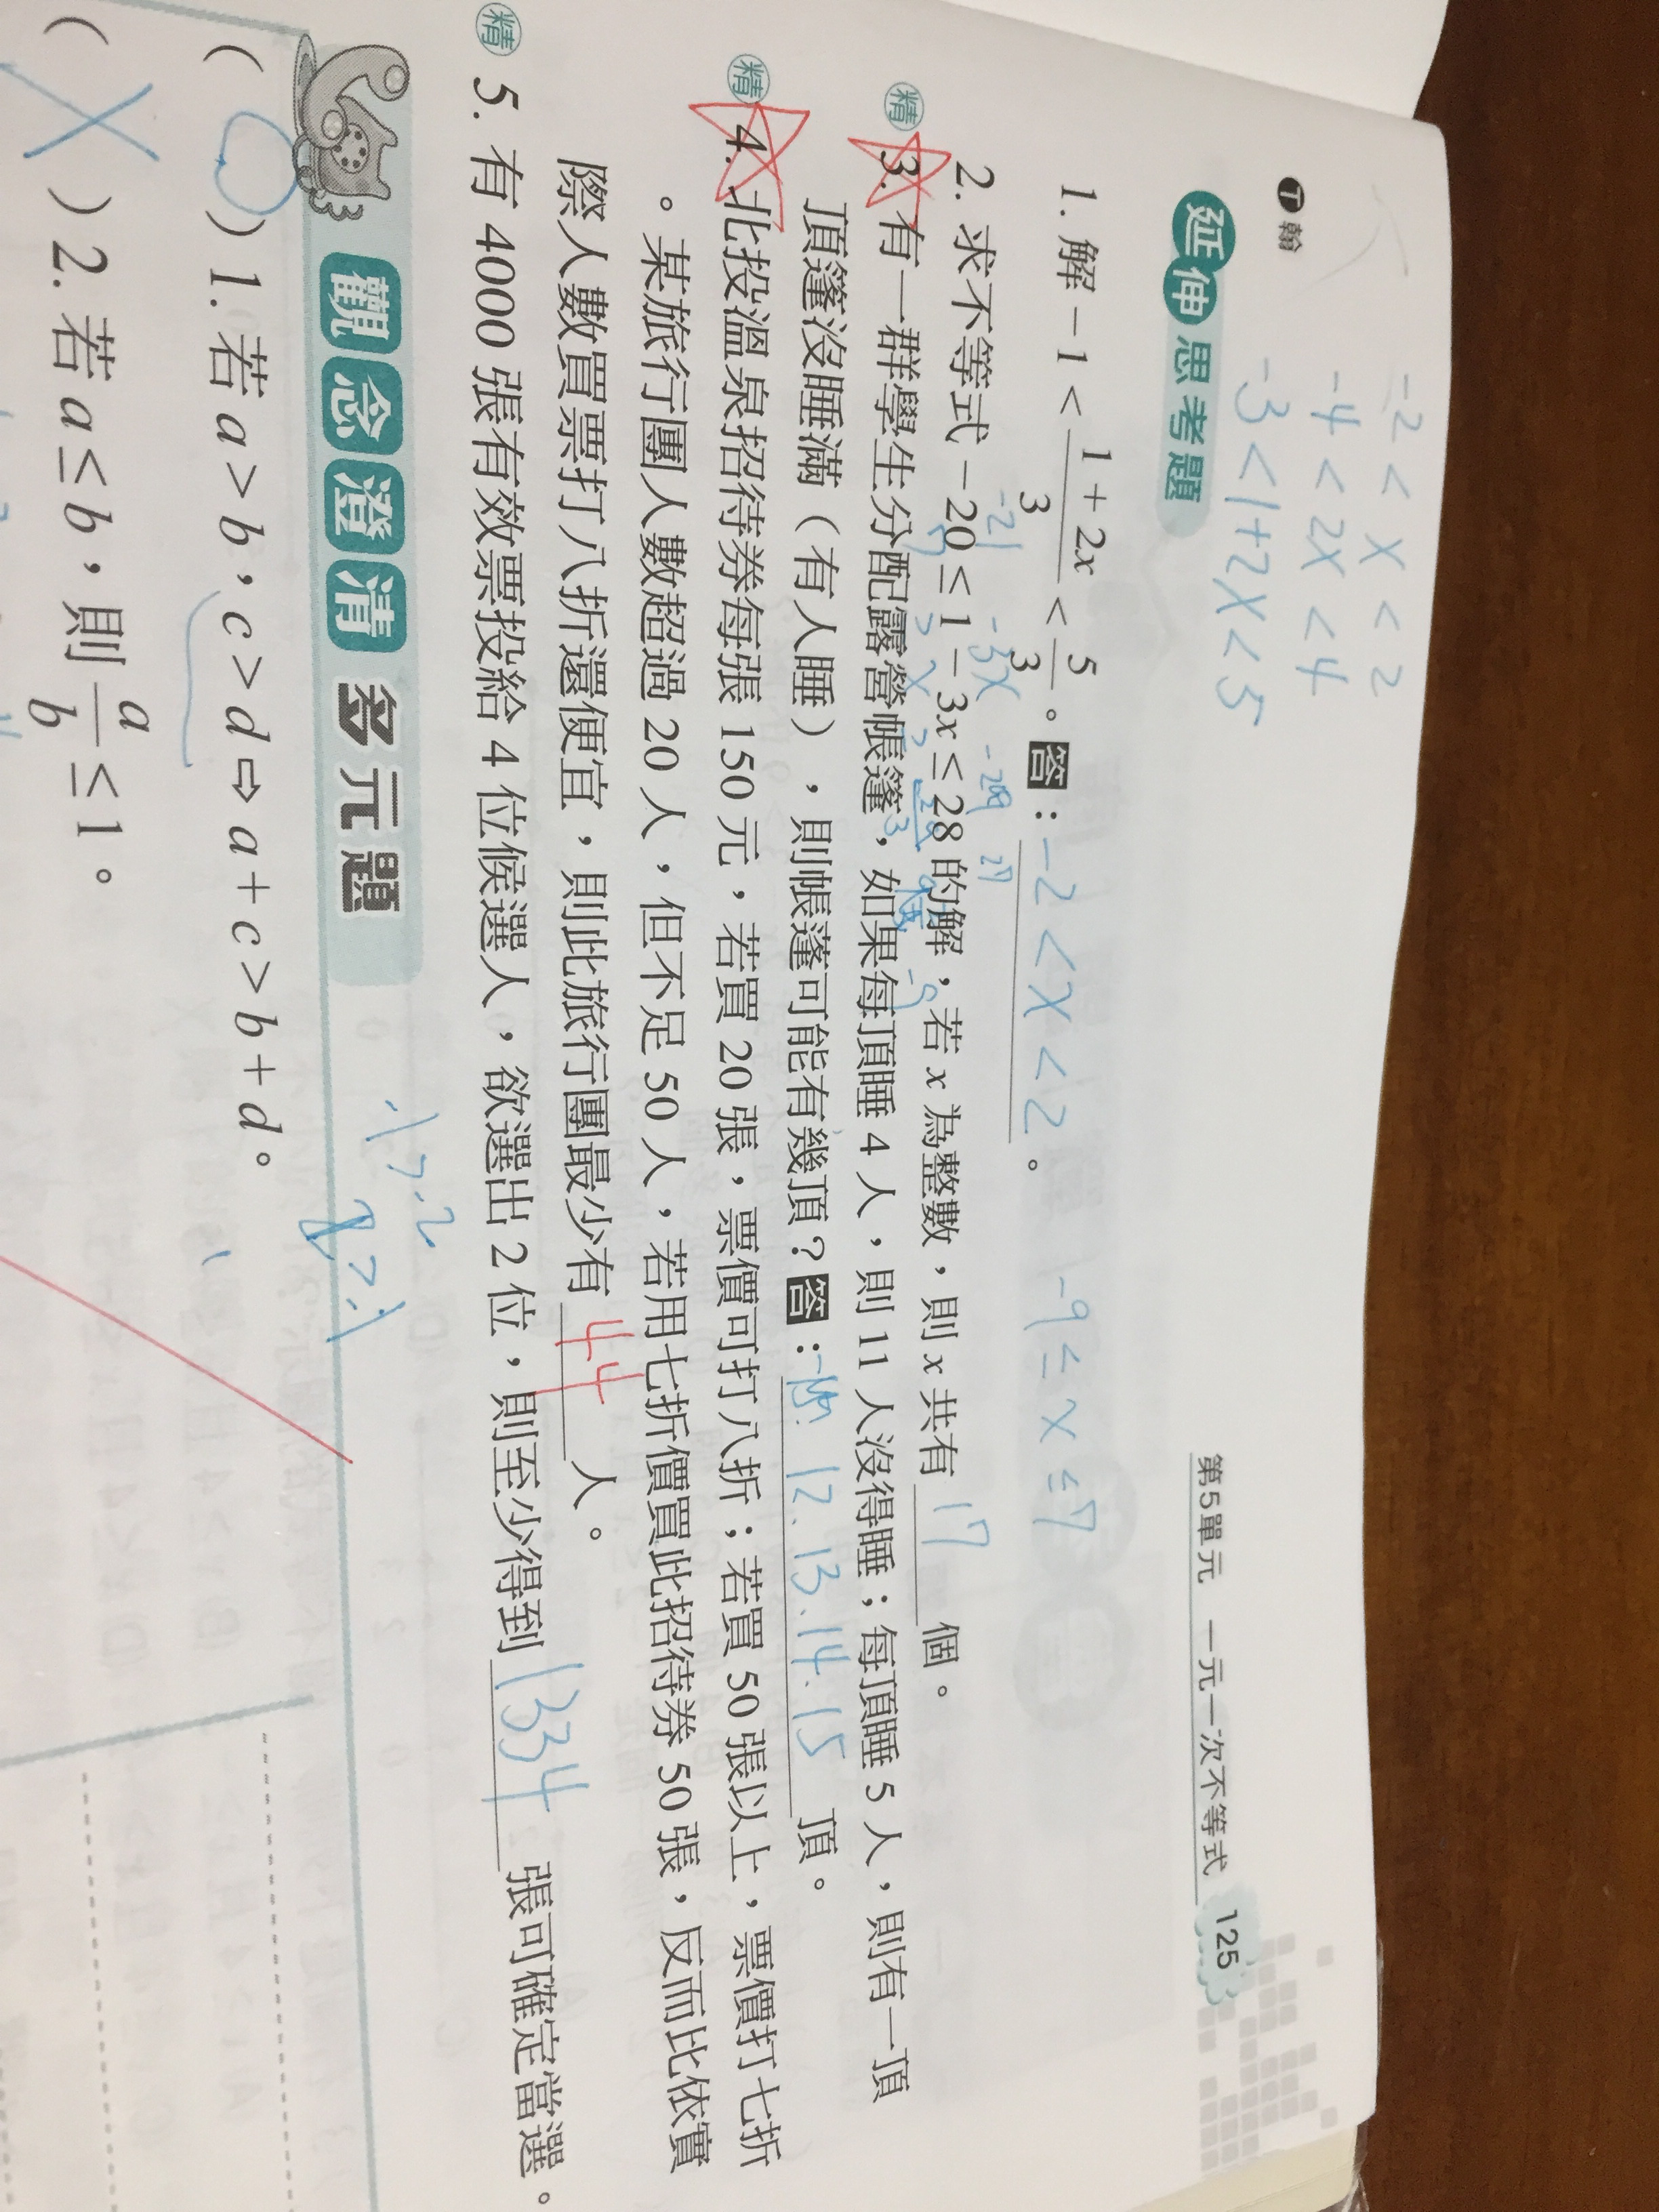 -2 < x < 2
-4 < 2x < 4
-3 < 1+2x < 5
翰
第5單元 一元一次不等式 125
延伸思考題
1. 解 -1 < \frac{1+2x}{3} < \frac{5}{3}。答：-2 < x < 2。
-9 ≤ x ≤ 7
2. 求不等式 -20 ≤ 1 - 3x ≤ 28 的解，若 x 為整數，則 x 共有 17 個。
-21 -3x
精 3. 有一群學生分配露營帳篷，如果每頂睡 4 人，則 11 人沒得睡；每頂睡 5 人，則有一頂
頂篷沒睡滿（有人睡），則帳蓬可能有幾頂？答：12、13、14、15 頂。
精 4. 北投溫泉招待券每張 150 元，若買 20 張，票價可打八折；若買 50 張以上，票價打七折
。某旅行團人數超過 20 人，但不足 50 人，若用七折價買此招待券 50 張，反而比依實
際人數買票打八折還便宜，則此旅行團最少有 44 人。
精 5. 有 4000 張有效票投給 4 位候選人，欲選出 2 位，則至少得到 1334 張可確定當選。
觀念澄清多元題
-1 > -2
( ○ ) 1. 若 a > b，c > d ⇨ a + c > b + d。
( X ) 2. 若 a ≤ b，則 \frac{a}{b} ≤ 1。